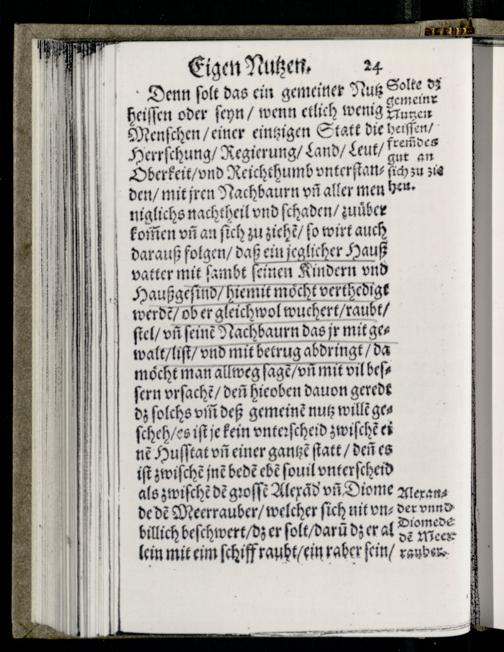 Eigen Nutzen. 24
Denn solt das ein gemeiner Nutz
heissen oder seyn/ wenn etlich wenig
Menschen/ einer eintzigen Statt die
Herrschung/ Regierung/ Land/ Leut/
Oberkeit/ vnd Reichthumb vnterstan⸗
den/ mit jren Nachbaurn vñ aller men
niglichs nachtheil vnd schaden/ zuüber
kom̃en vñ an sich zu ziehẽ/ so wirt auch
darauß folgen/ daß ein jeglicher Hauß
vatter mit sambt seinen Kindern vnd
Haußgesind/ hiemit möcht verthedigt
werdẽ/ ob er gleichwol wuchert/ raubt/
stel/ vñ seinẽ Nachbaurn das jr mit ge⸗
walt/ list/ vnd mit betrug abdringt/ da
möcht man allweg sagẽ/ vñ mit vil bes⸗
sern vrsachẽ/ deñ hieoben dauon geredt
dz solchs vm̃ deß gemeinẽ nutz willẽ ge⸗
scheh/ es ist je kein vnterscheid zwischẽ ei
nẽ Husstat vñ einer gantzẽ statt/ deñ es
ist zwischẽ jnẽ bedẽ ebẽ souil vnterscheid
als zwischẽ dẽ grossẽ Alexãd' vñ Diome
de dẽ Meerrauber/ welcher sich nit vn⸗
billich beschwert/ dz er solt/ darũ dz er al
lein mit eim schiff raubt/ ein raber sein/
Solte dz
gemeine
Nutzen
heissen/
frem̃des
gut an
sich zu zie
hen.
Alexan⸗
der vnnd
Diomede
dẽ Meer
rauber.